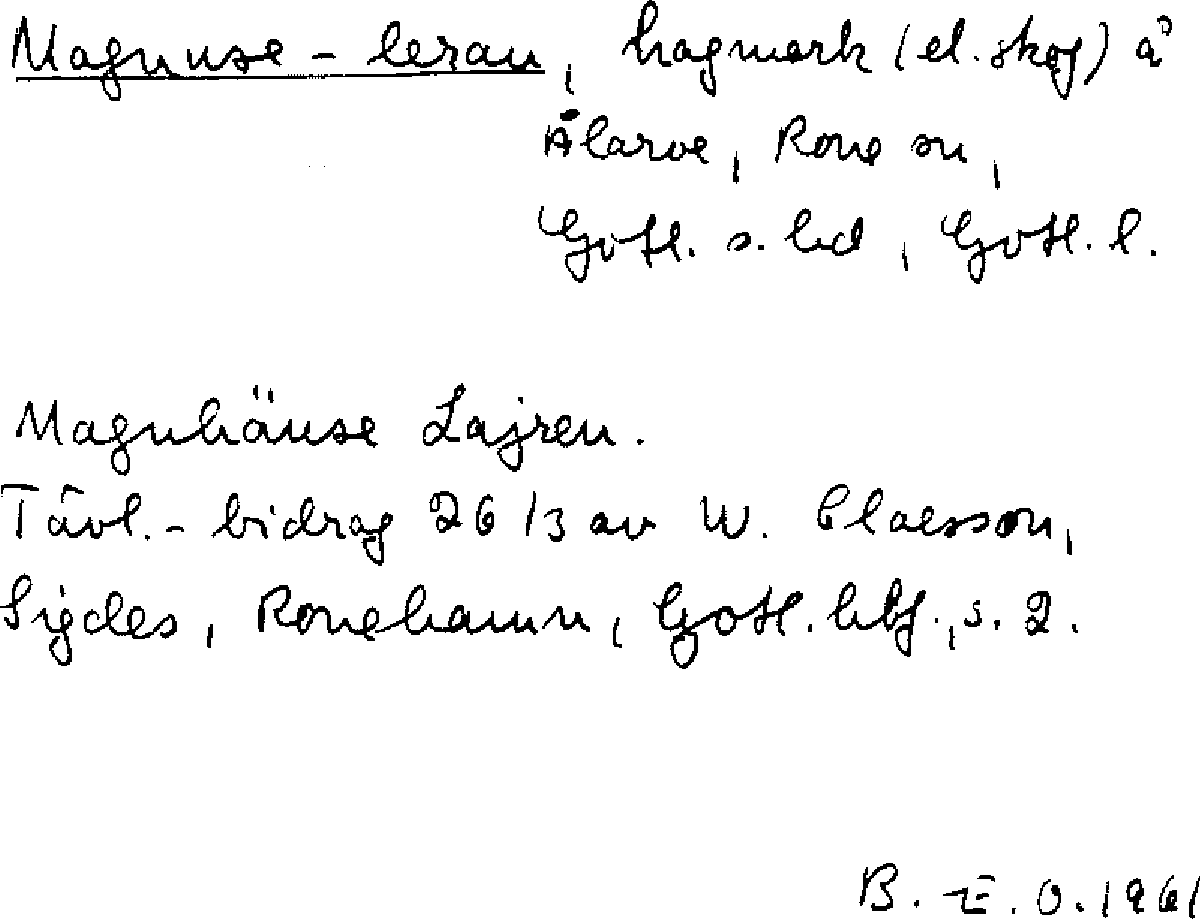 Magnuse-leran, hagmark (el. skog) å
Ålarve, Rone sn,
Gotl. s. hd, Gotl. l.
Magnhäuse Lajren.
Tävl.-bidrag 26/3 av W. Claesson,
Sigdes, Ronehamn, Gotl. hbf., s. 2.
B. E. O. 1961